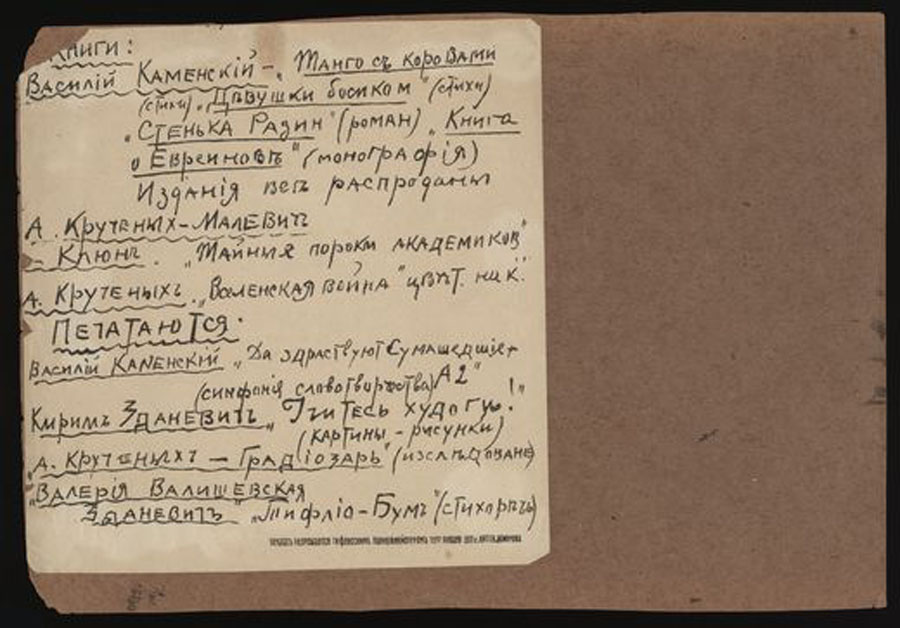 Книги:
Василій Каменскій – „Танго съ коровами
(стихи) „Дѣвушки босиком" (стихи)
„Стенька Разин" (роман) „Книга
о Евреиновѣ" (монографія)
Изданія всѣ распроданы
А. Крученых-Малевич
– Клюнъ. „Тайныя пороки академиков"
А. Крученыхъ. „Вселенская война" цвѣт. нак.
Печатаются.
Василій Каменскій „Да здраствуют Сумашедшіе
(синфонія словотворчества) А2"
Кирилъ Зданевичъ „Учитесь худоги!"
(картины – рисунки)
„А. Крученыхъ – Градіозарь" (изслѣдованіе)
"Валерія Валишевская
Зданевичъ „Тифлів-Бумъ" (стихорѣчь)